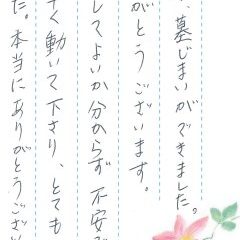 、墓じまいができました。
がとうございます。
してよいか分からず不安で
く動いて下さり、とても
た。本当にありがとうござい